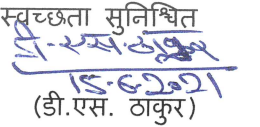 स्वच्छता सुनिश्चित
डी-एस-ठाकुर
15-6-2021
(डी.एस. ठाकुर)